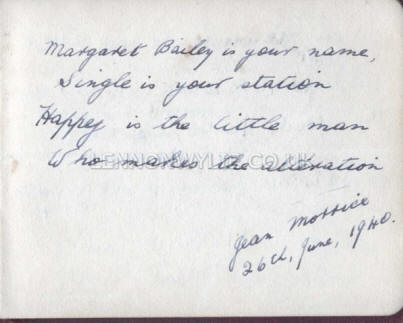 Margaret Bailey is your name,
Single is your station
Happy is the little man
Who makes the alteration
LENNONWYLIE.CO.UK
Jean Morrice
26th, June, 1940.